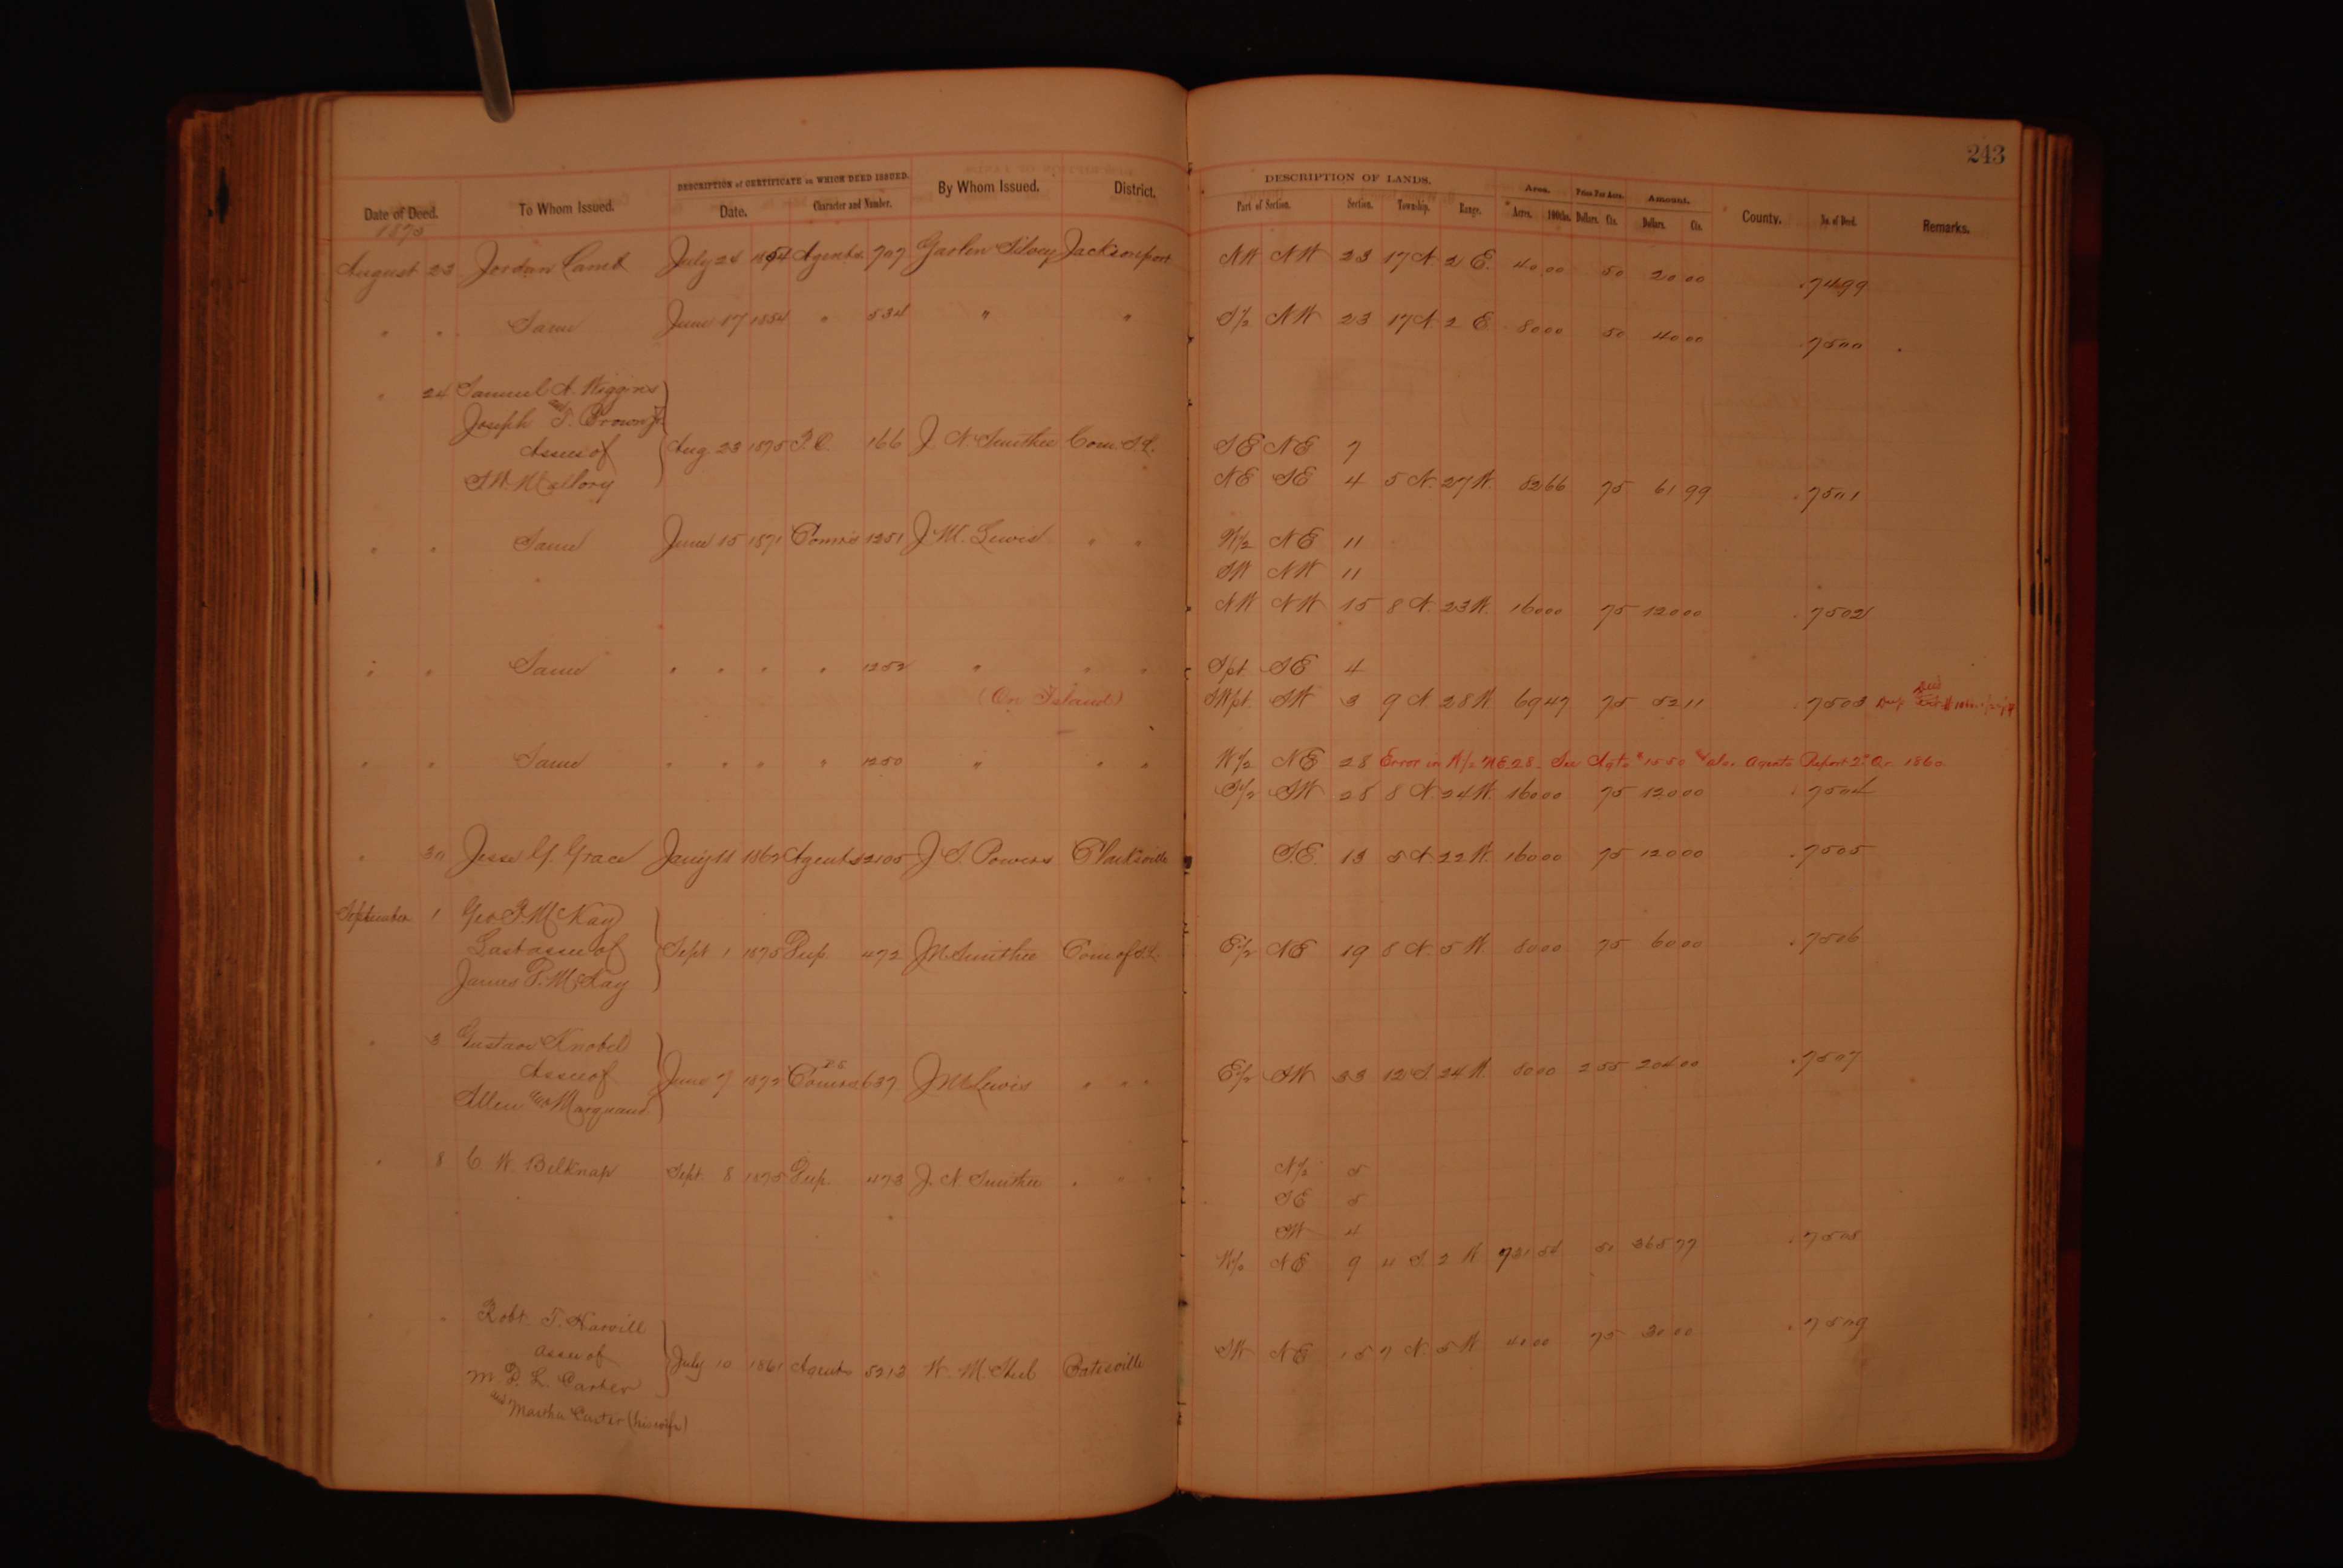 243
DESCRIPTION of CERTIFICATE on WHICH DEED ISSUED. DESCRIPTION OF LANDS. Area. Price Per Acre. Amount.
Date of Deed. To Whom Issued. Date. Character and Number. By Whom Issued. District. Part of Section. Section. Township. Range. Acres. 100ths. Dollars. Cts. Dollars. Cts. County. No. of Deed. Remarks.
1875
August 23 Jordan Lamb July 24 1854 Agents 707 Garlen Silvey Jacksonport NW NW 23 17 N. 2 E. 40 00 50 20 00 7499
" " Same June 17 1854 " 534 " " S/2 NW 23 17 N. 2 E 80 00 50 40 00 7500
" 24 Samuel A. Wiggins
Joseph T. Brown Jr.
Assee of Aug. 23 1875 P.C. 166 J. N. Smithee Com. S.L. SE NE 7
S.W. Mallory NE SE 4 5 N. 27 W. 82 66 75 61 99 7501
" " Same June 15 1871 Comrs 1251 J M. Lewis " " W/2 NE 11
SW NW 11
NW NW 15 8 N. 23 W. 160 00 75 120 00 7502
" " Same " " " " 1252 " " " S/pt SE 4
(On Island) SW pt. SW 3 9 N. 28 W 69 47 75 52 11 7503
" " Same " " " " 1250 " " " W/2 NE 28 Error in W/2 NE 28. See Agts # 1550 and also Agents Report 2d Qr. 1860
S/2 SW 28 8 N 24 W. 160 00 75 120 00 7504
" 30 Jesse G. Grace Jany 11 1862 Agents 2105 J S. Powers Clarksville S.E. 13 5 N. 22 W. 160 00 75 120 00 7505
September 1 Geo P. McKay
Last assee of Sept 1 1875 Dup. 472 J N Smithee Com. of S.L. E/2 NE 19 8 N. 5 W. 80 00 75 60 00 7506
James P. McKay
" 3 Gustave Knobel
Assee of June 7 1872 Comrs 637 J M Lewis " " " E/2 SW 33 12 S. 24 W. 80 00 2 55 204 00 7507
Allen and Marquand
" 8 C. W. Belknap Sept. 8 1875 Dup. 473 J. N. Smithee " " " N/2 5
SE 5
SW 4
W/2 NE 9 4 S. 2 W 731 54 50 365 77 7508
" " Robt. T. Harvill
assee of July 10 1861 Agents 5213 W. M. Steel Batesville SW NE 15 7 N. 5 W 40 00 75 30 00 7509
M. P. L. Carter
and Martha Carter (his wife)